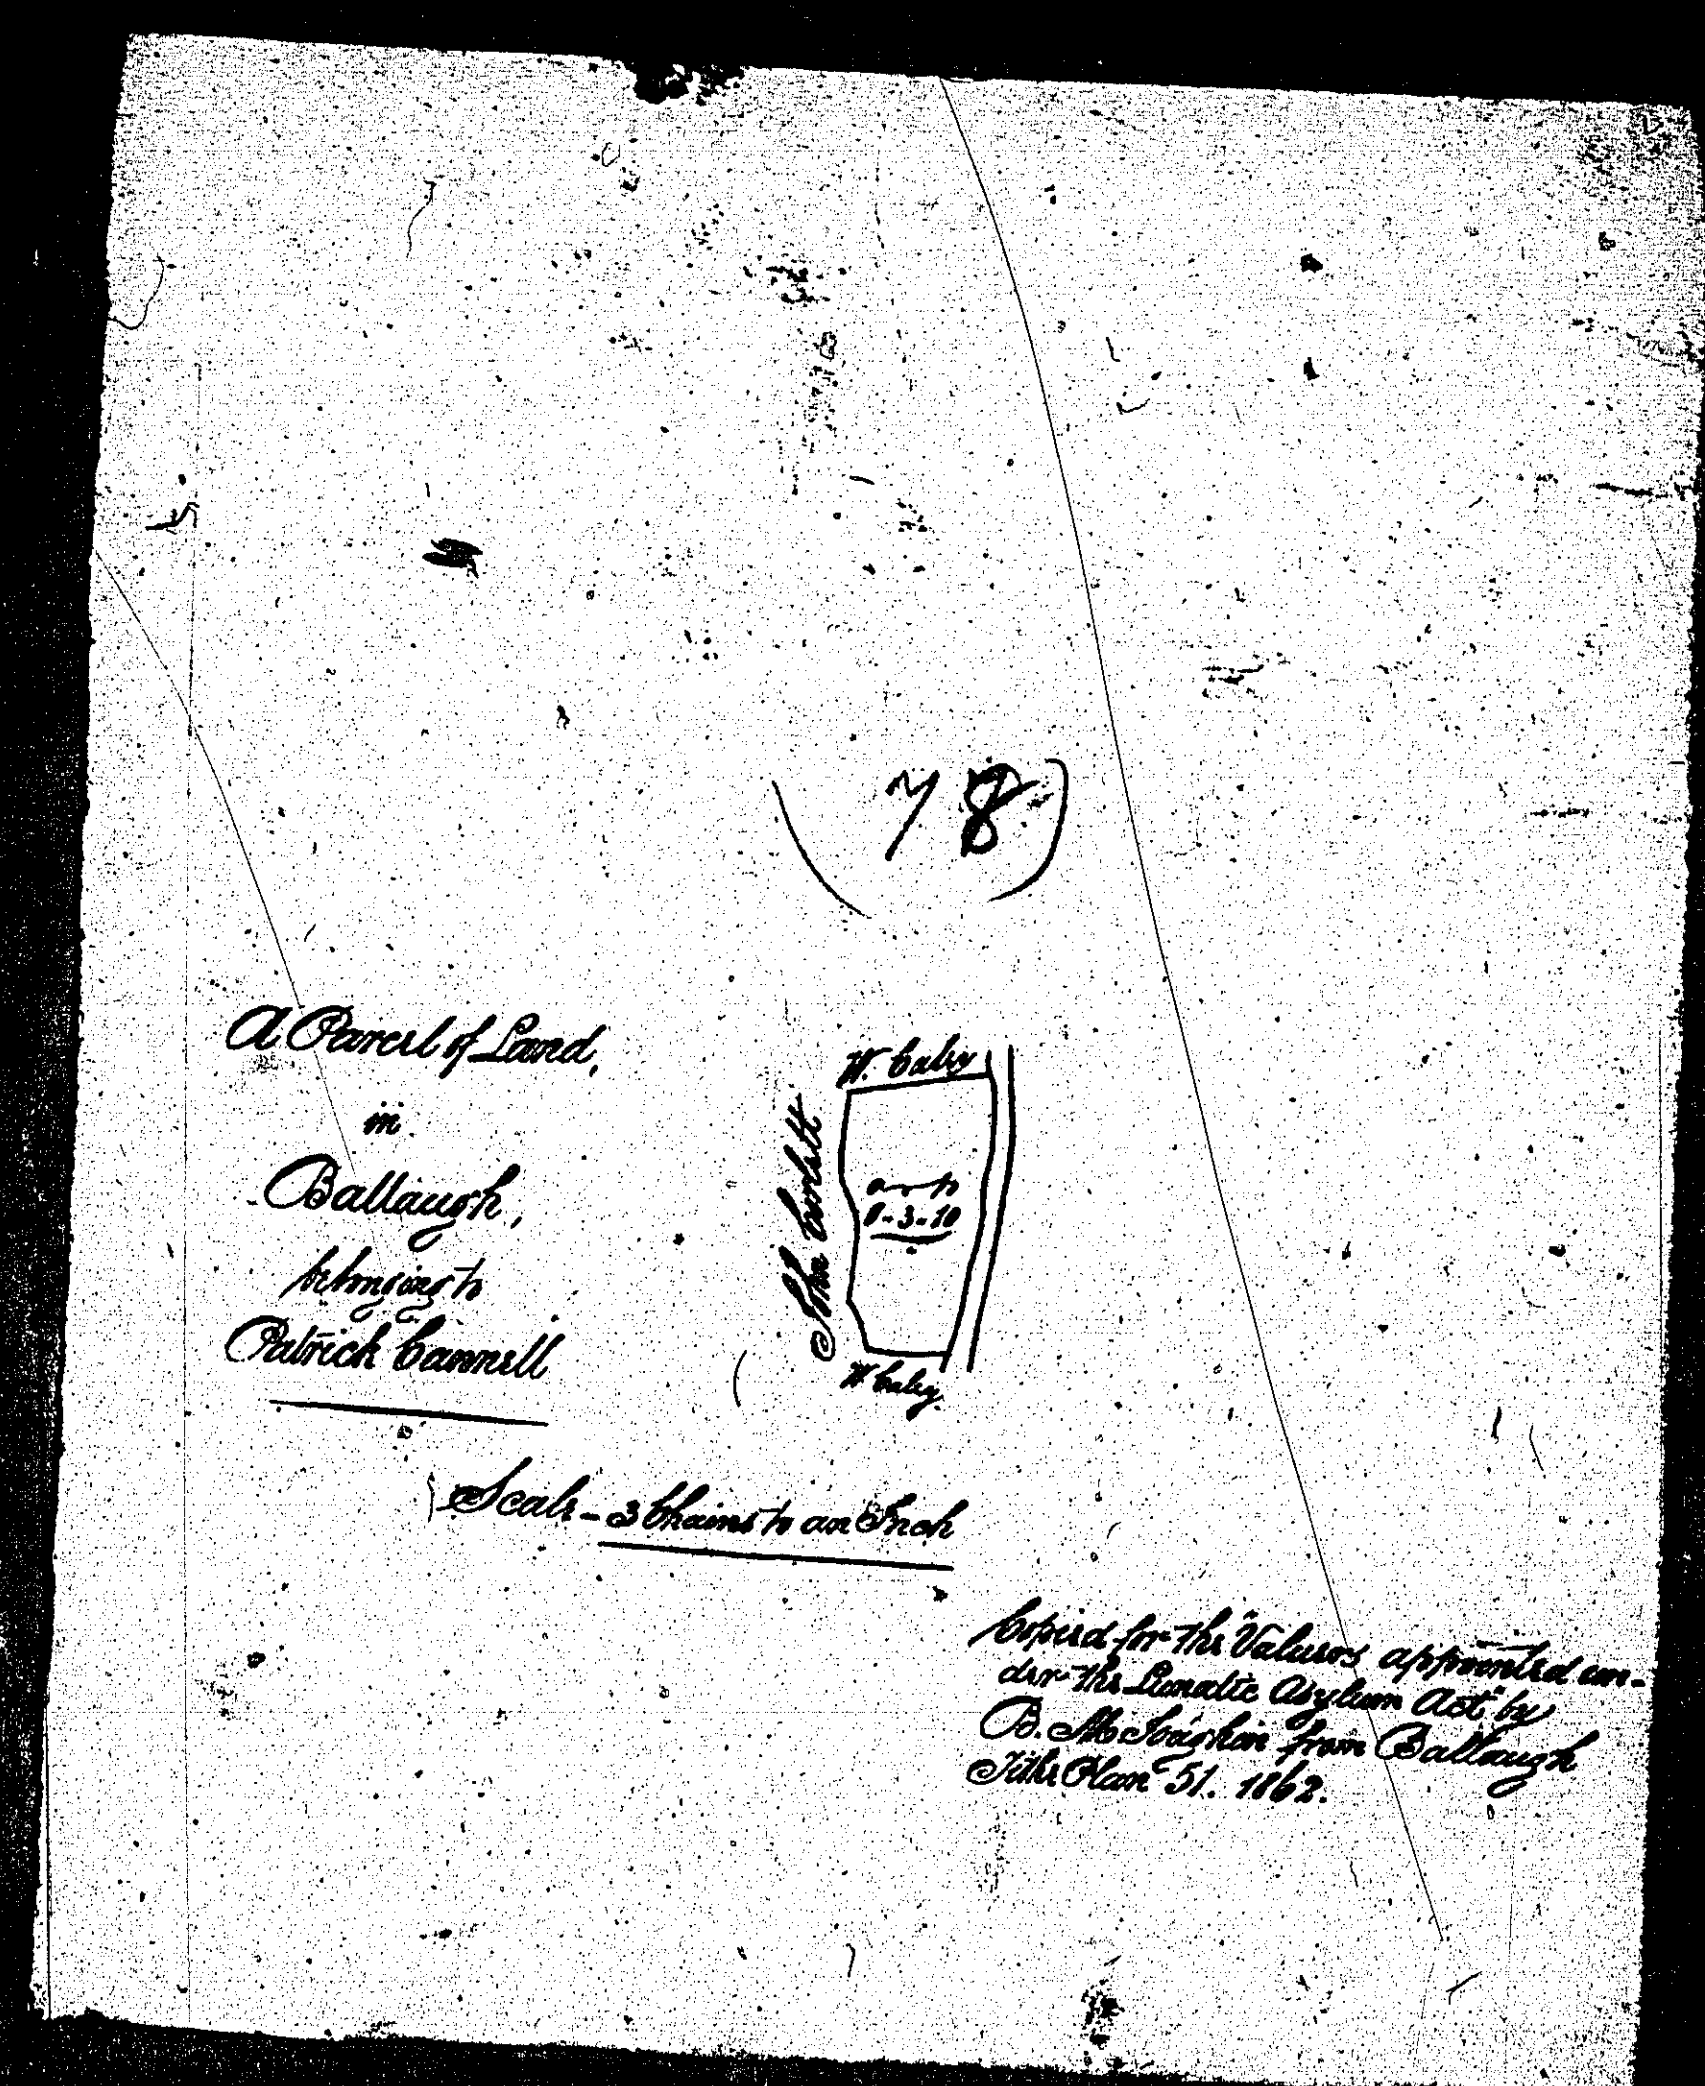 (78)
A Parcel of Land,
in
Ballaugh,
belonging to
Patrick Cannell
W. Caley
John
a - r - p
0 - 3 - 10
W Caley
Scale - 3 Chains to an Inch
Copied for the Valuers appointed un-
der the "Lunatic Asylum Act" by
B. from Ballaugh
Tithe Plan 51. 1862.